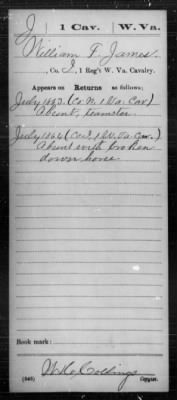 J | 1 Cav. | W. Va.
William F. James
, Co. I, 1 Reg't W. Va. Cavalry.
Appears on Returns as follows:
July 1863 (Co. N. 1 Va. Cav)
Absent, teamster.
July 1864 (Co. I, 1 W. Va Cav.)
Absent with broken
down horse
Book mark:
Collings
(546) Copyist.